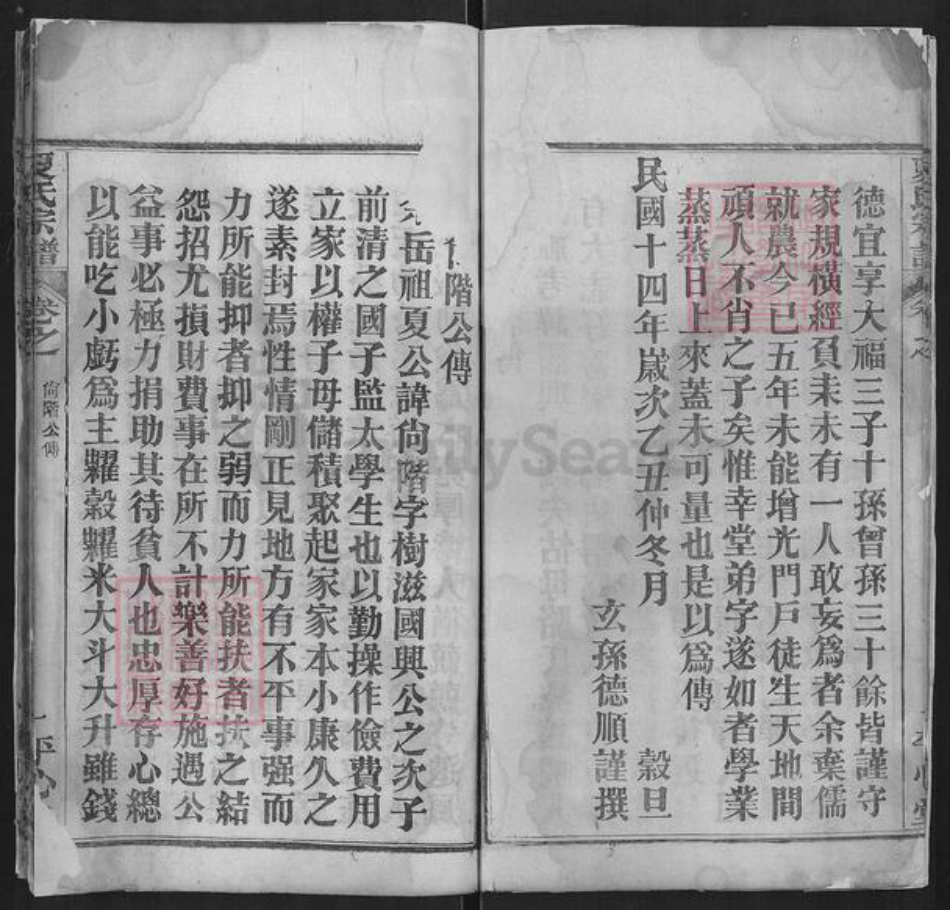 德宜享大福三子十孫曾孫三十餘皆謹守
家規橫經負耒未有一人敢妄為者余棄儒
就農今已五年未能增光門戶徒生天地間
頑人不肖之子矣惟幸堂弟字遂如者學業
蒸蒸日上來蓋未可量也是以為傳
民國十四年歲次乙丑仲冬月 穀旦
玄孫德順謹撰
階公傳
岳祖夏公諱尙階字樹滋國興公之次子
前清之國子監太學生也以勤操作儉費用
立家以權子母儲積聚起家家本小康久之
遂素封焉性情剛正見地方有不平事强而
力所能抑者抑之弱而力所能扶者扶之結
怨招尤損財費事在所不計樂善好施遇公
益事必極力捐助其待貧人也忠厚存心總
以能吃小虧為主糶穀糶米大斗大升雖錢
夏氏宗譜
卷之
尙階公傳